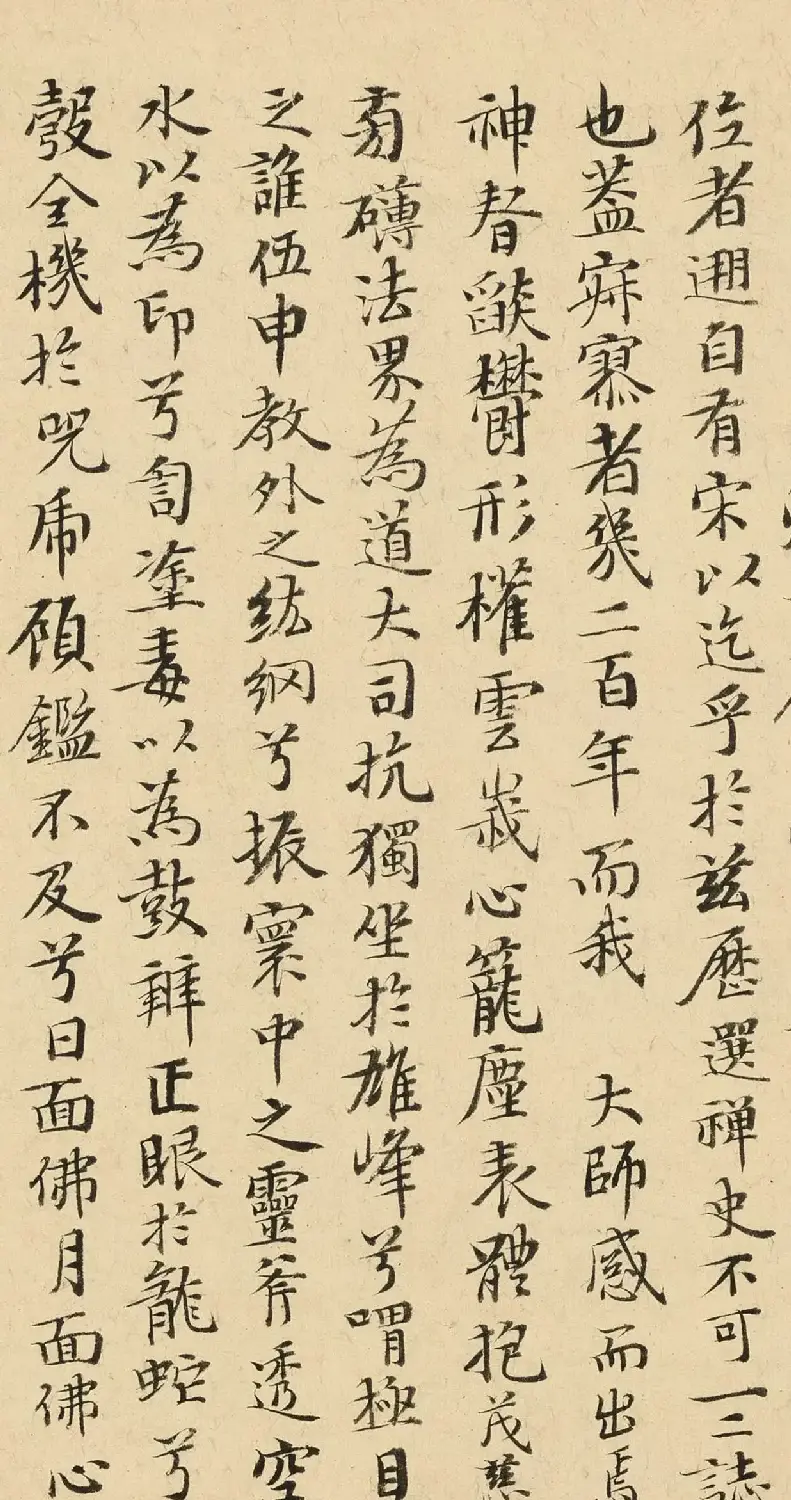 位者迴自有宋以迄乎於茲歷選禪史不可一二誌
也蓋寂寥者幾二百年而我 大師感而出焉
神督燄鬱形權雲峩心籠塵表體抱茂慈
旁礴法界為道大司抗獨坐於雄峰兮喟極目
之誰伍申教外之紘綱兮振寰中之靈斧透空
水以為印兮匋塗毒以為鼓辨正眼於龍蛇兮
彀全機於咒虎顧鑑不及兮日面佛月面佛心